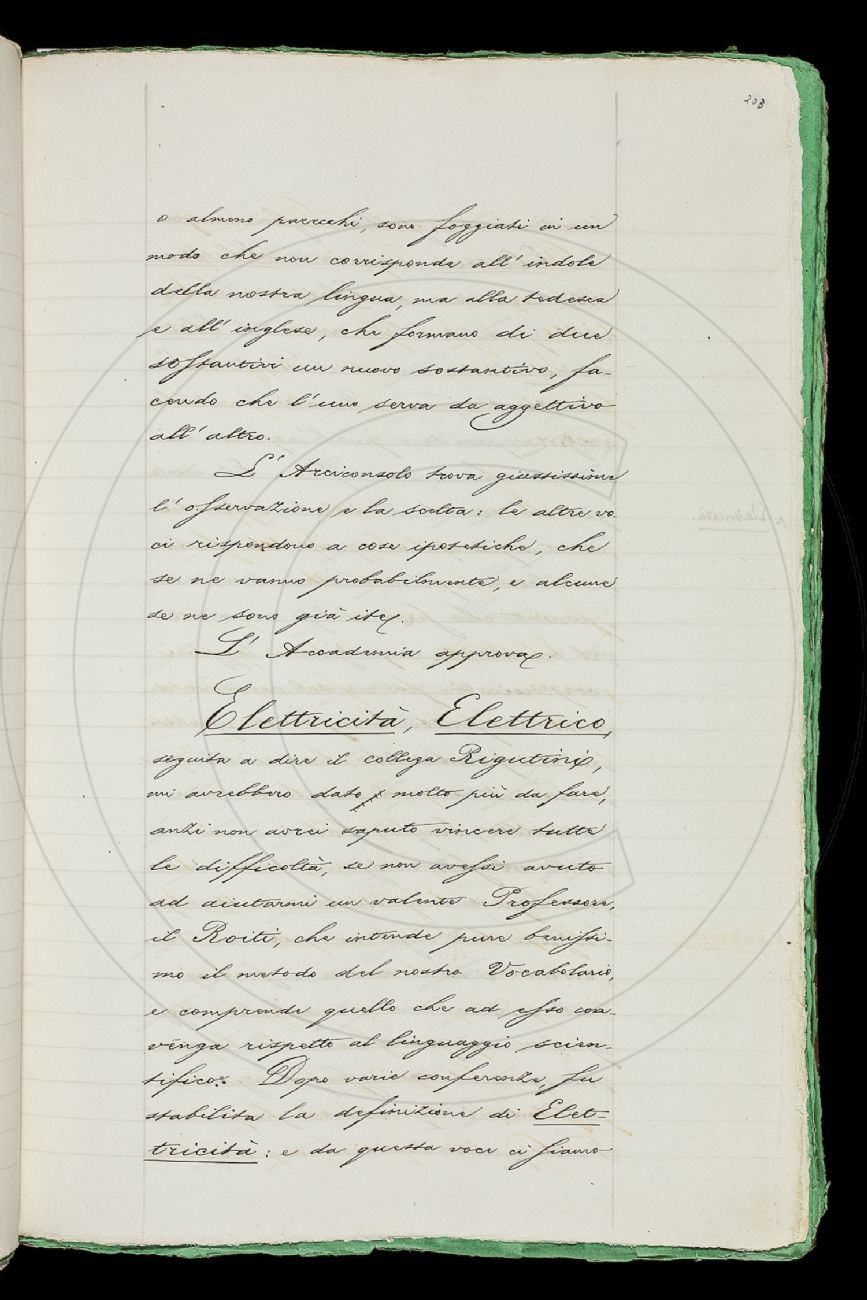 203
o almeno parecchi, sono foggiati in un
modo che non corrisponde all'indole
della nostra lingua, ma alla tedesca
e all'inglese, che formano di due
sostantivi un nuovo sostantivo, fa-
cendo che l'uno serva da aggettivo
all'altro.
L'Arciconsolo trova giustissima
l'osservazione e la scelta: le altre vo
ci rispondono a cose ipotetiche, che
se ne vanno probabilmente, e alcune
se ne sono già ite.
L'Accademia approva.
Elettricità, Elettrico,
seguita a dire il collega Rigutini,
mi avrebbero dato molto più da fare,
anzi non avrei saputo vincere tutte
le difficoltà, se non avessi avuto
ad aiutarmi un valente Professore,
il Roiti, che intende pure benissi-
mo il metodo del nostro Vocabolario,
e comprende quello che ad esso con-
venga rispetto al linguaggio scien-
tifico. Dopo varie conferenze, fu
stabilita la definizione di Elet-
tricità: e da questa voce ci siamo